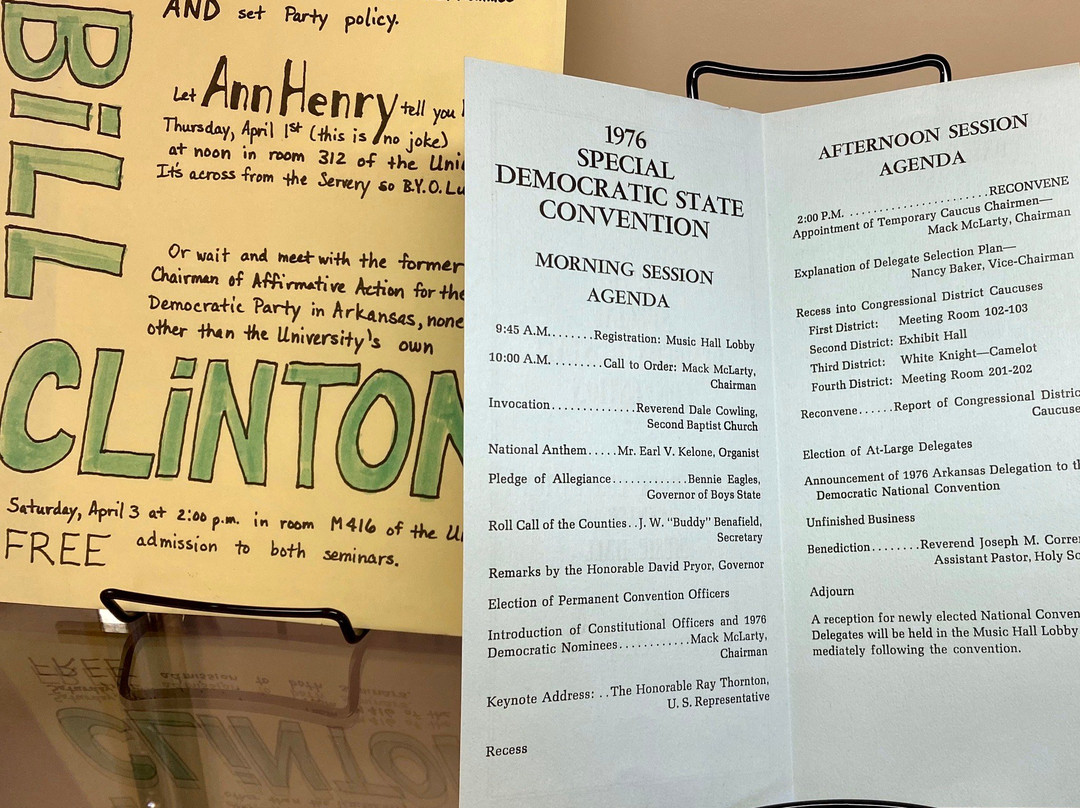 AND set Party policy.
Let Ann Henry tell you
Thursday, April 1st (this is no joke)
at noon in room 312 of the
It's across from the Servery so B.Y.O.
Or wait and meet with the former
Chairman of Affirmative Action for the
Democratic Party in Arkansas, none
other than the University's own
BiLL
CLiNTON
Saturday, April 3 at 2:00 p.m. in room M416 of the
FREE admission to both seminars.
1976
SPECIAL
DEMOCRATIC STATE
CONVENTION
MORNING SESSION
AGENDA
9:45 A.M.......Registration: Music Hall Lobby
10:00 A.M.........Call to Order: Mack McLarty,
Chairman
Invocation.............Reverend Dale Cowling,
Second Baptist Church
National Anthem.....Mr. Earl V. Kelone, Organist
Pledge of Allegiance............Bennie Eagles,
Governor of Boys State
Roll Call of the Counties..J. W. "Buddy" Benafield,
Secretary
Remarks by the Honorable David Pryor, Governor
Election of Permanent Convention Officers
Introduction of Constitutional Officers and 1976
Democratic Nominees...........Mack McLarty,
Chairman
Keynote Address: ..The Honorable Ray Thornton,
U. S. Representative
Recess
AFTERNOON SESSION
AGENDA
2:00 P.M. ......................RECONVENE
Appointment of Temporary Caucus Chairmen—
Mack McLarty, Chairman
Explanation of Delegate Selection Plan—
Nancy Baker, Vice-Chairman
Recess into Congressional District Caucuses
First District: Meeting Room 102-103
Second District: Exhibit Hall
Third District: White Knight—Camelot
Fourth District: Meeting Room 201-202
Reconvene......Report of Congressional
Election of At-Large Delegates
Announcement of 1976 Arkansas Delegation to
Democratic National Convention
Unfinished Business
Benediction........Reverend Joseph M.
Assistant Pastor, Holy
Adjourn
A reception for newly elected National
Delegates will be held in the Music Hall Lobby
mediately following the convention.